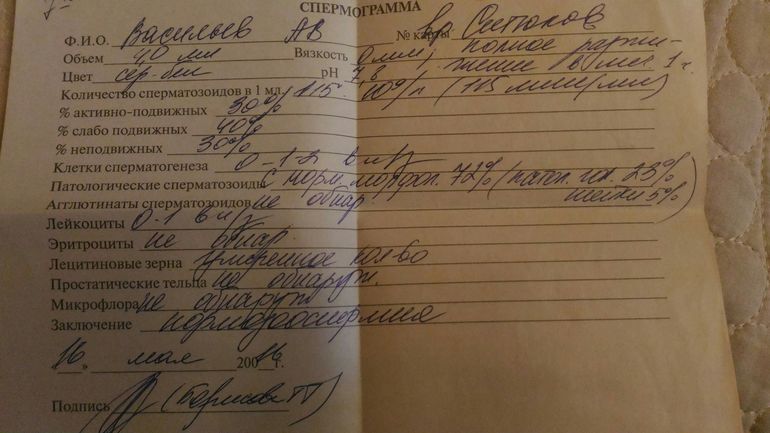 СПЕРМОГРАММА
Ф.И.О. Васильев АВ № карты вр
Объем 4,0 мл Вязкость 0 мм, полное разжи-
Цвет сер-бел pH 7,8 жение в теч. 1 ч.
Количество сперматозоидов в 1 мл. 115· 10⁹/л (115 млн/мл)
% активно-подвижных 30%
% слабо подвижных 40%
% неподвижных 30%
Клетки сперматогенеза 0-1-2 в п/з
Патологические сперматозоиды с норм. морфол. 72% (патол. гол. 23%
Агглютинаты сперматозоидов не обнар. шейки 5%)
Лейкоциты 0-1 в п/з
Эритроциты не обнар.
Лецитиновые зерна умеренное кол-во
Простатические тельца не обнаруж.
Микрофлора не обнаруж
Заключение нормозооспермия
16 " мая 200 16 г.
Подпись